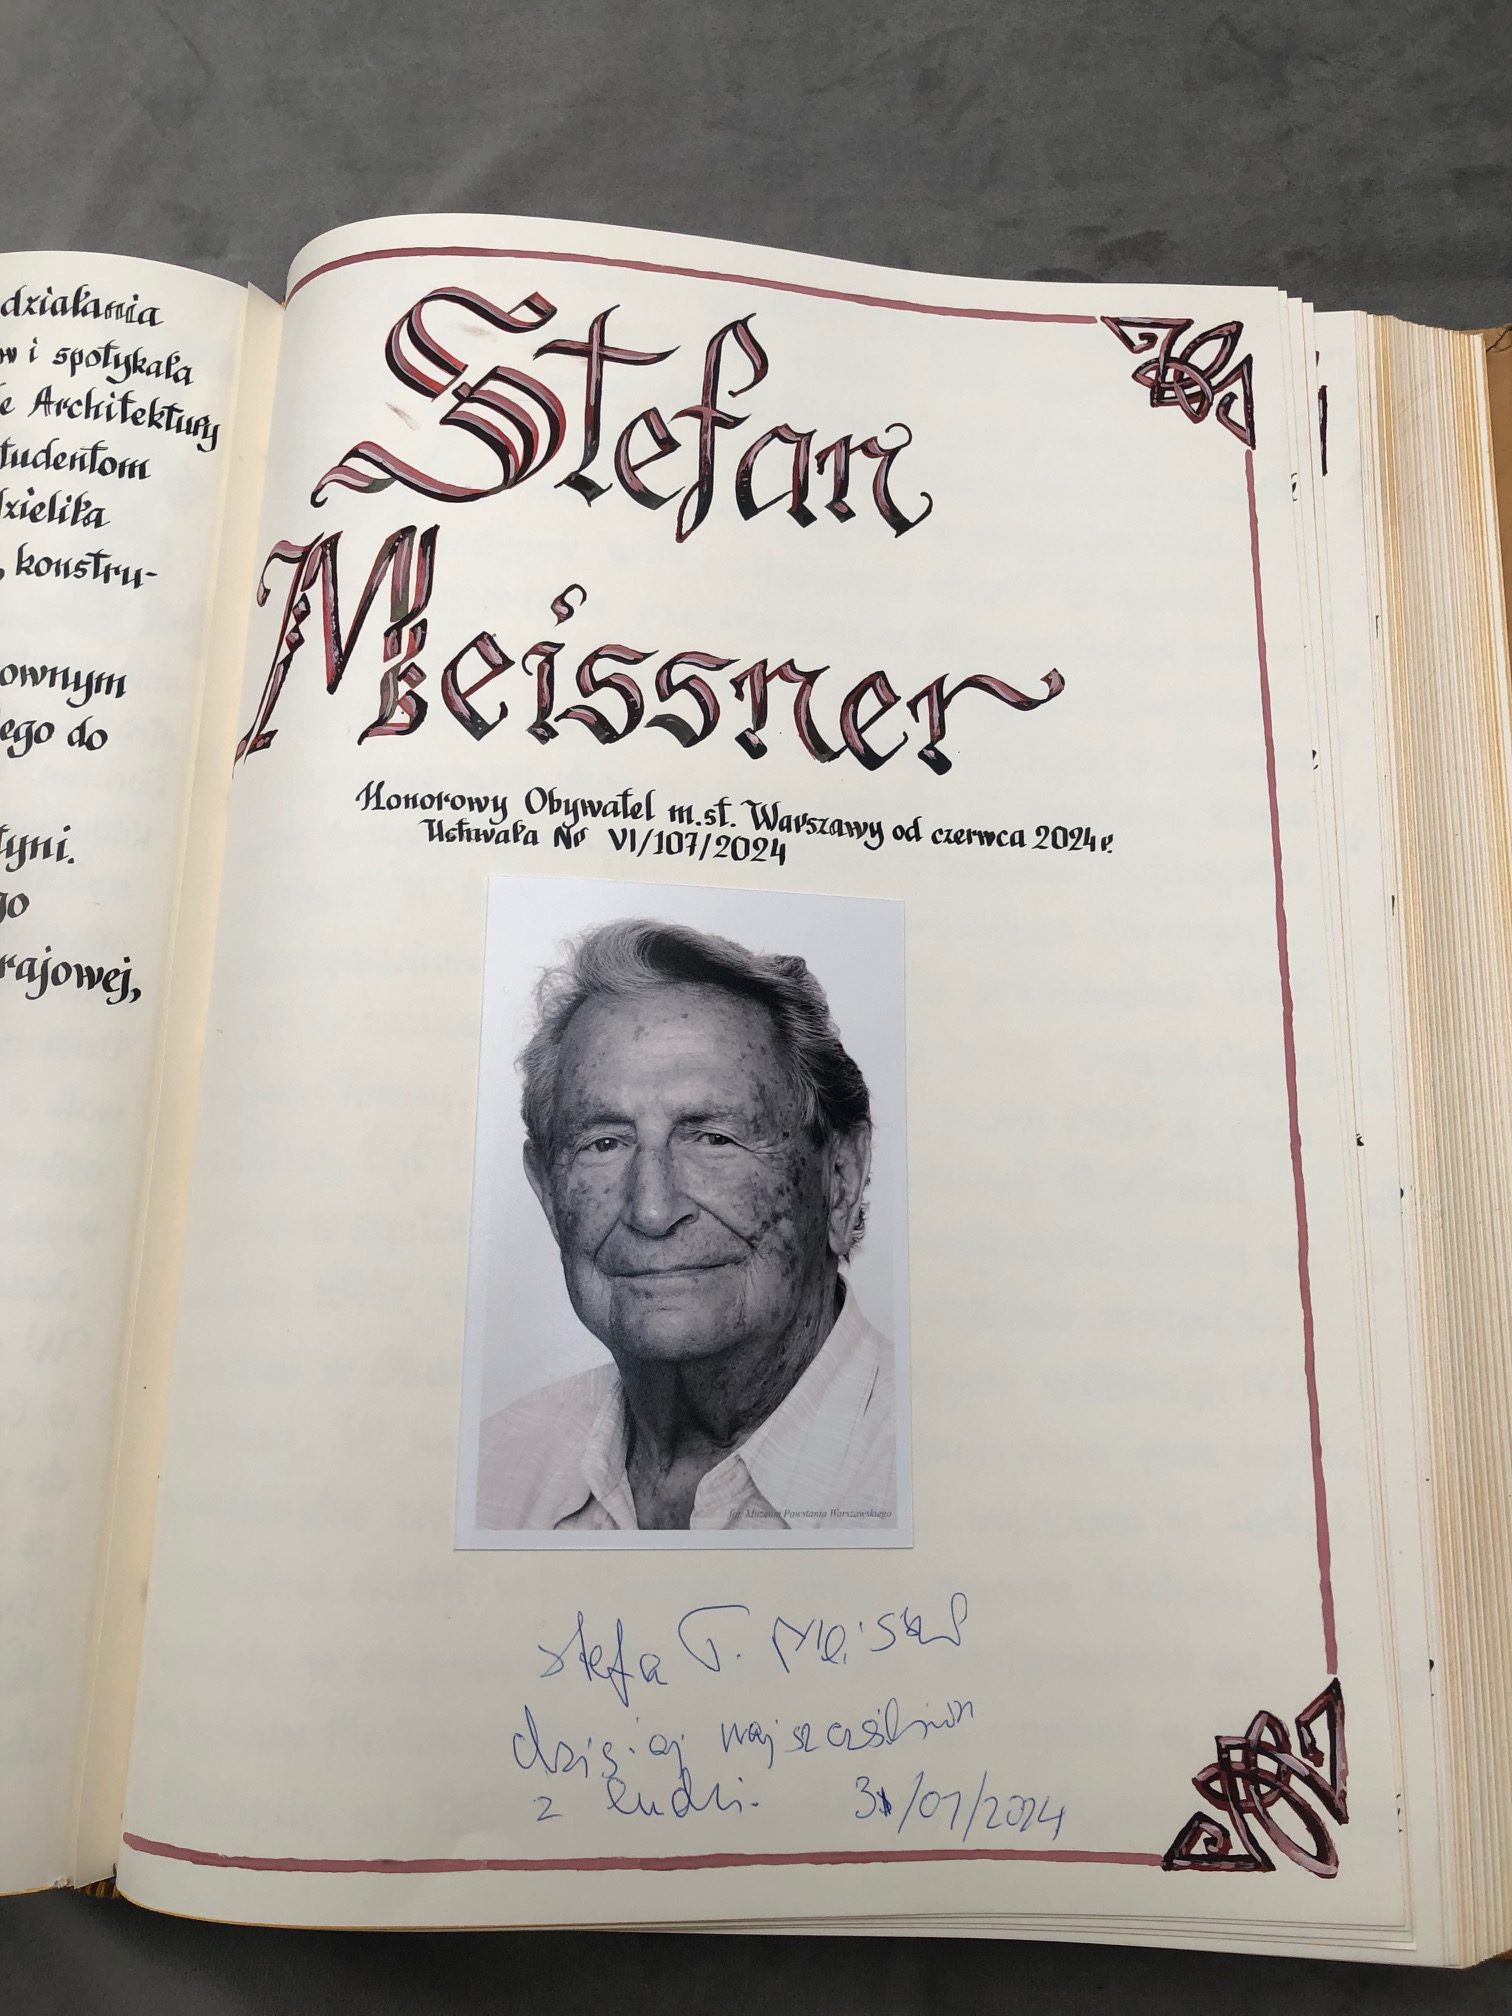 działania
w i spotykała
e Architektury
tudentom
dzieliła
, konstru-
ownym
ego do
tyni.
go
rajowej,
Stefan
Meissner
Honorowy Obywatel m.st. Warszawy od czerwca 2024 r.
Uchwała Nr VI/107/2024
fot. Muzeum Powstania Warszawskiego
Stefa T. Meissn
dzisiaj najszczęśliwszn
z ludzi. 31/07/2024